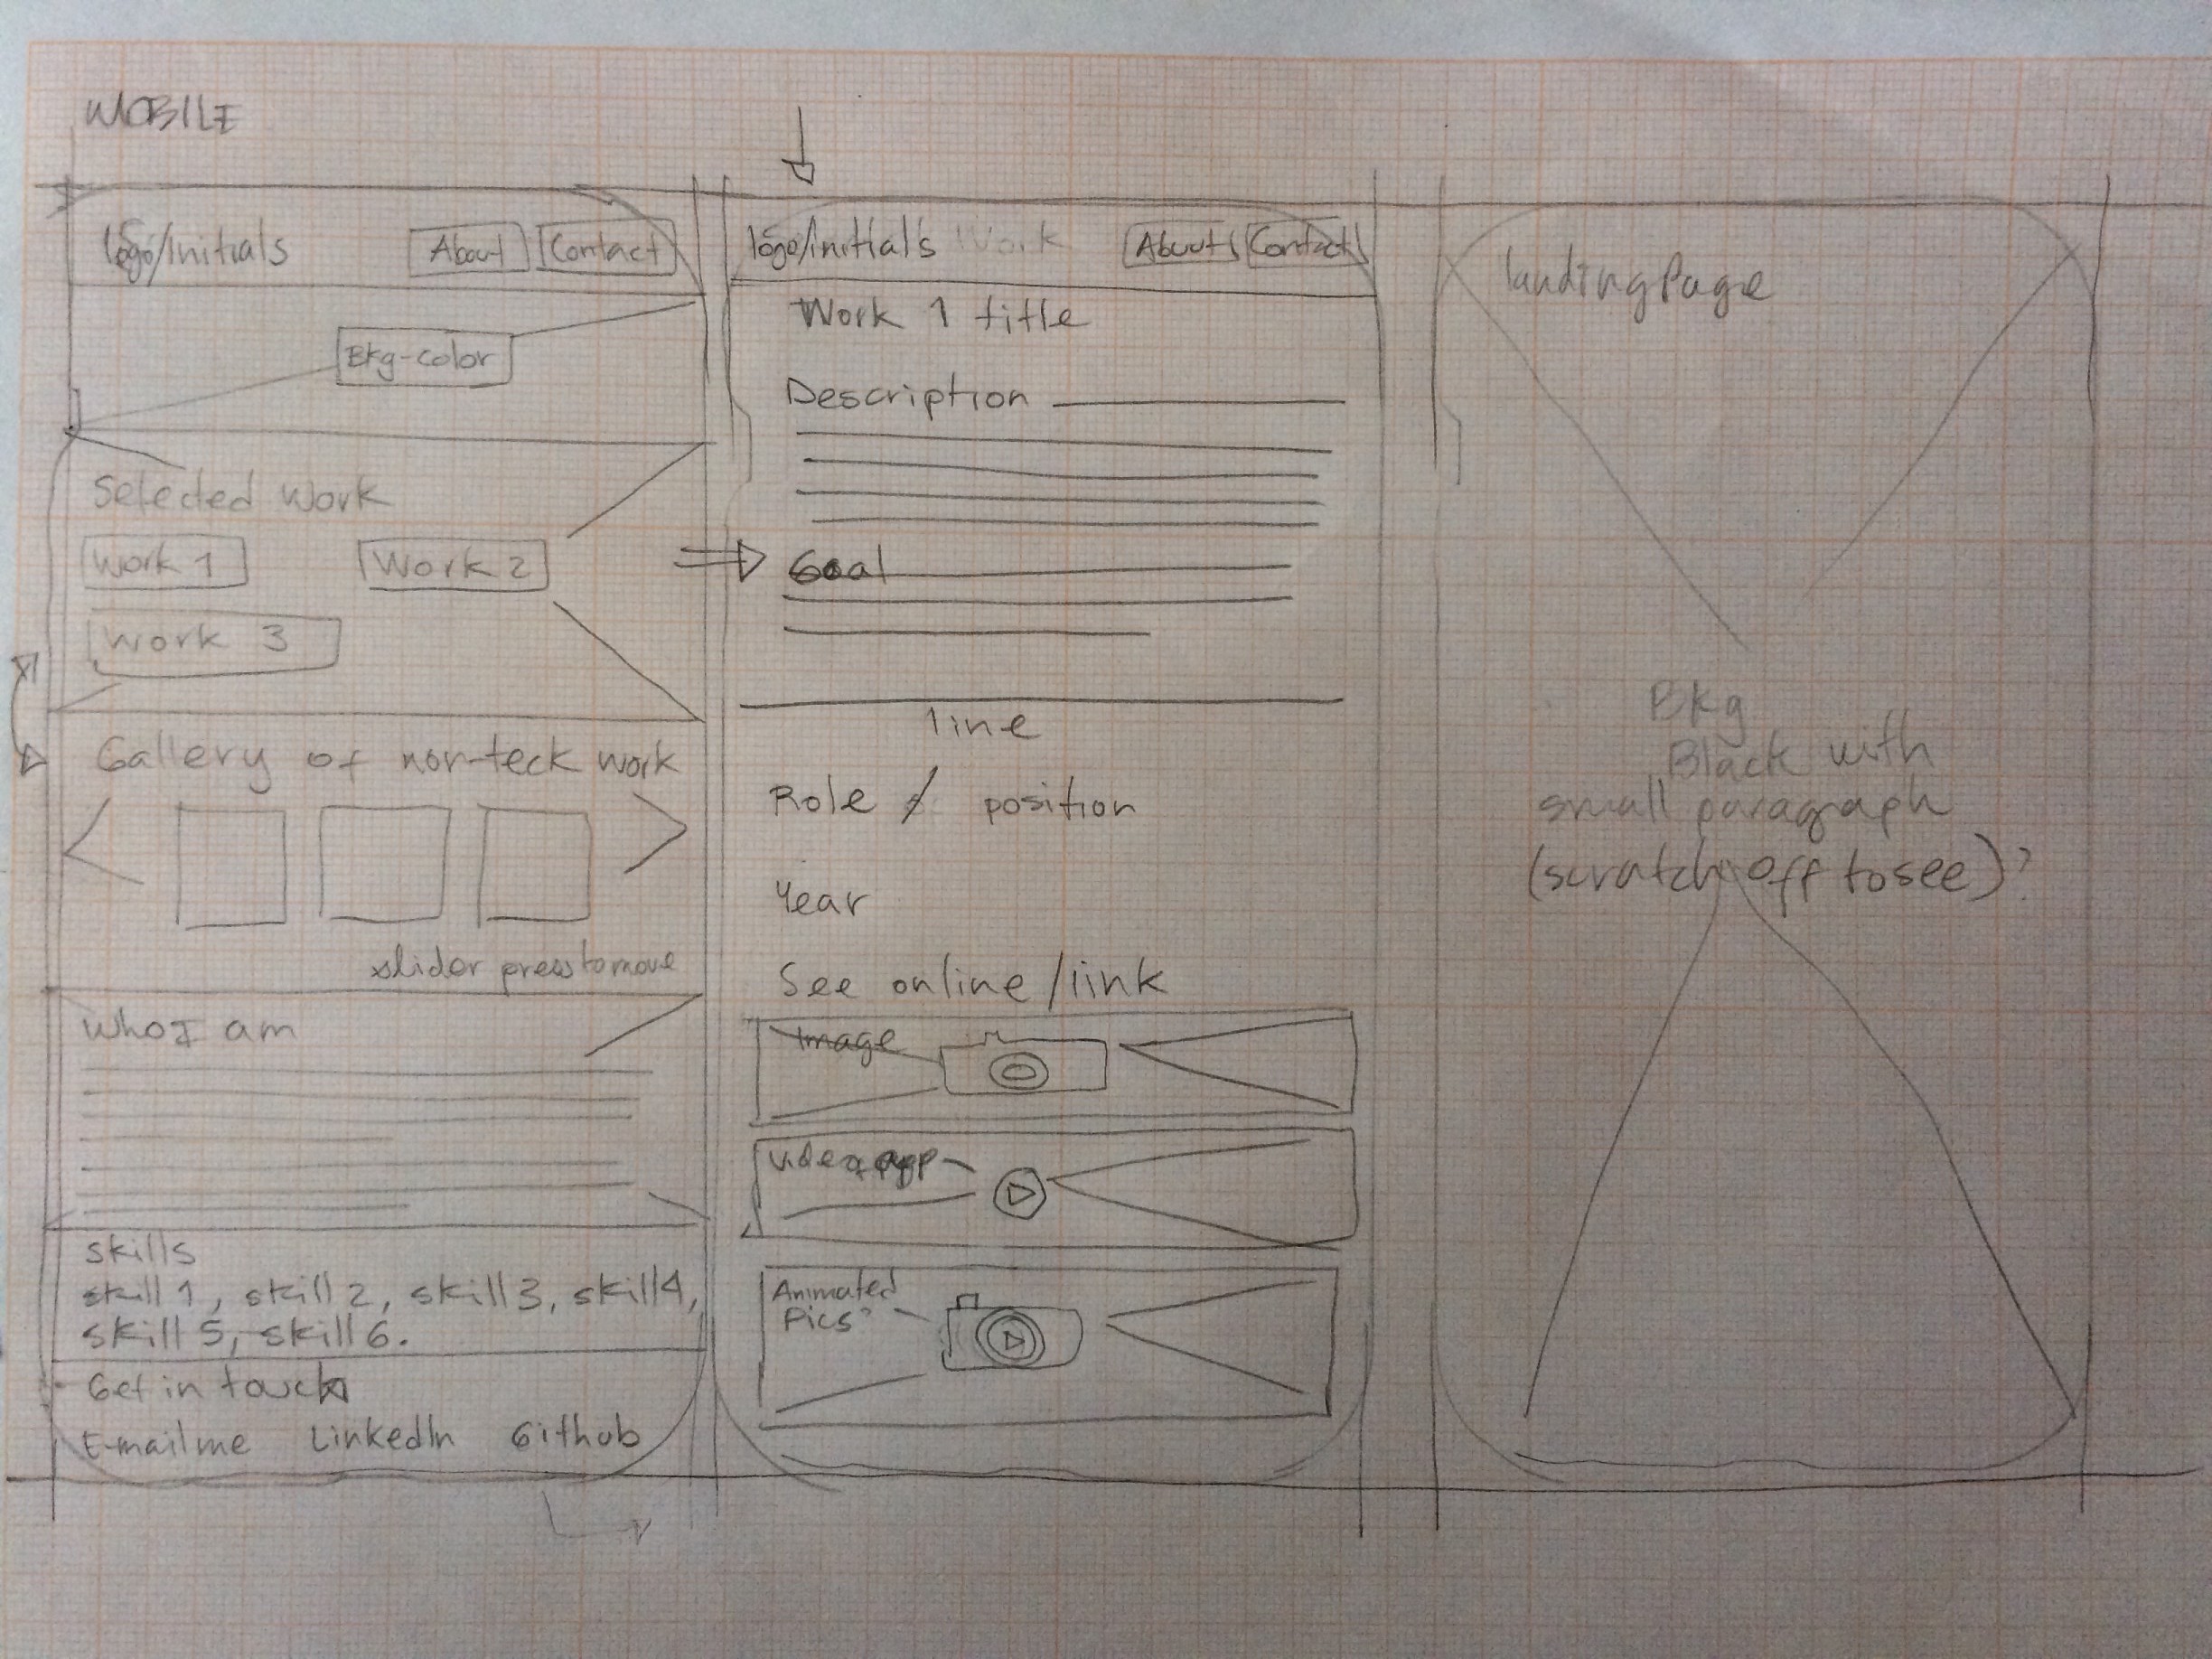 MOBILE
logo/Initials About Contact
Bkg-color
Selected Work
Work 1 Work 2
Work 3
Gallery of non-teck work
slider press to move
Who I am
skills
skill 1, skill 2, skill 3, skill 4,
skill 5, skill 6.
Get in touch
E-mail me LinkedIn Github
logo/initials Work About Contact
Work 1 title
Description
Goal
line
Role / position
Year
See online/link
Image
Video app
Animated
Pics?
landing Page
Bkg
Black with
small paragraph
(scratch off to see)?